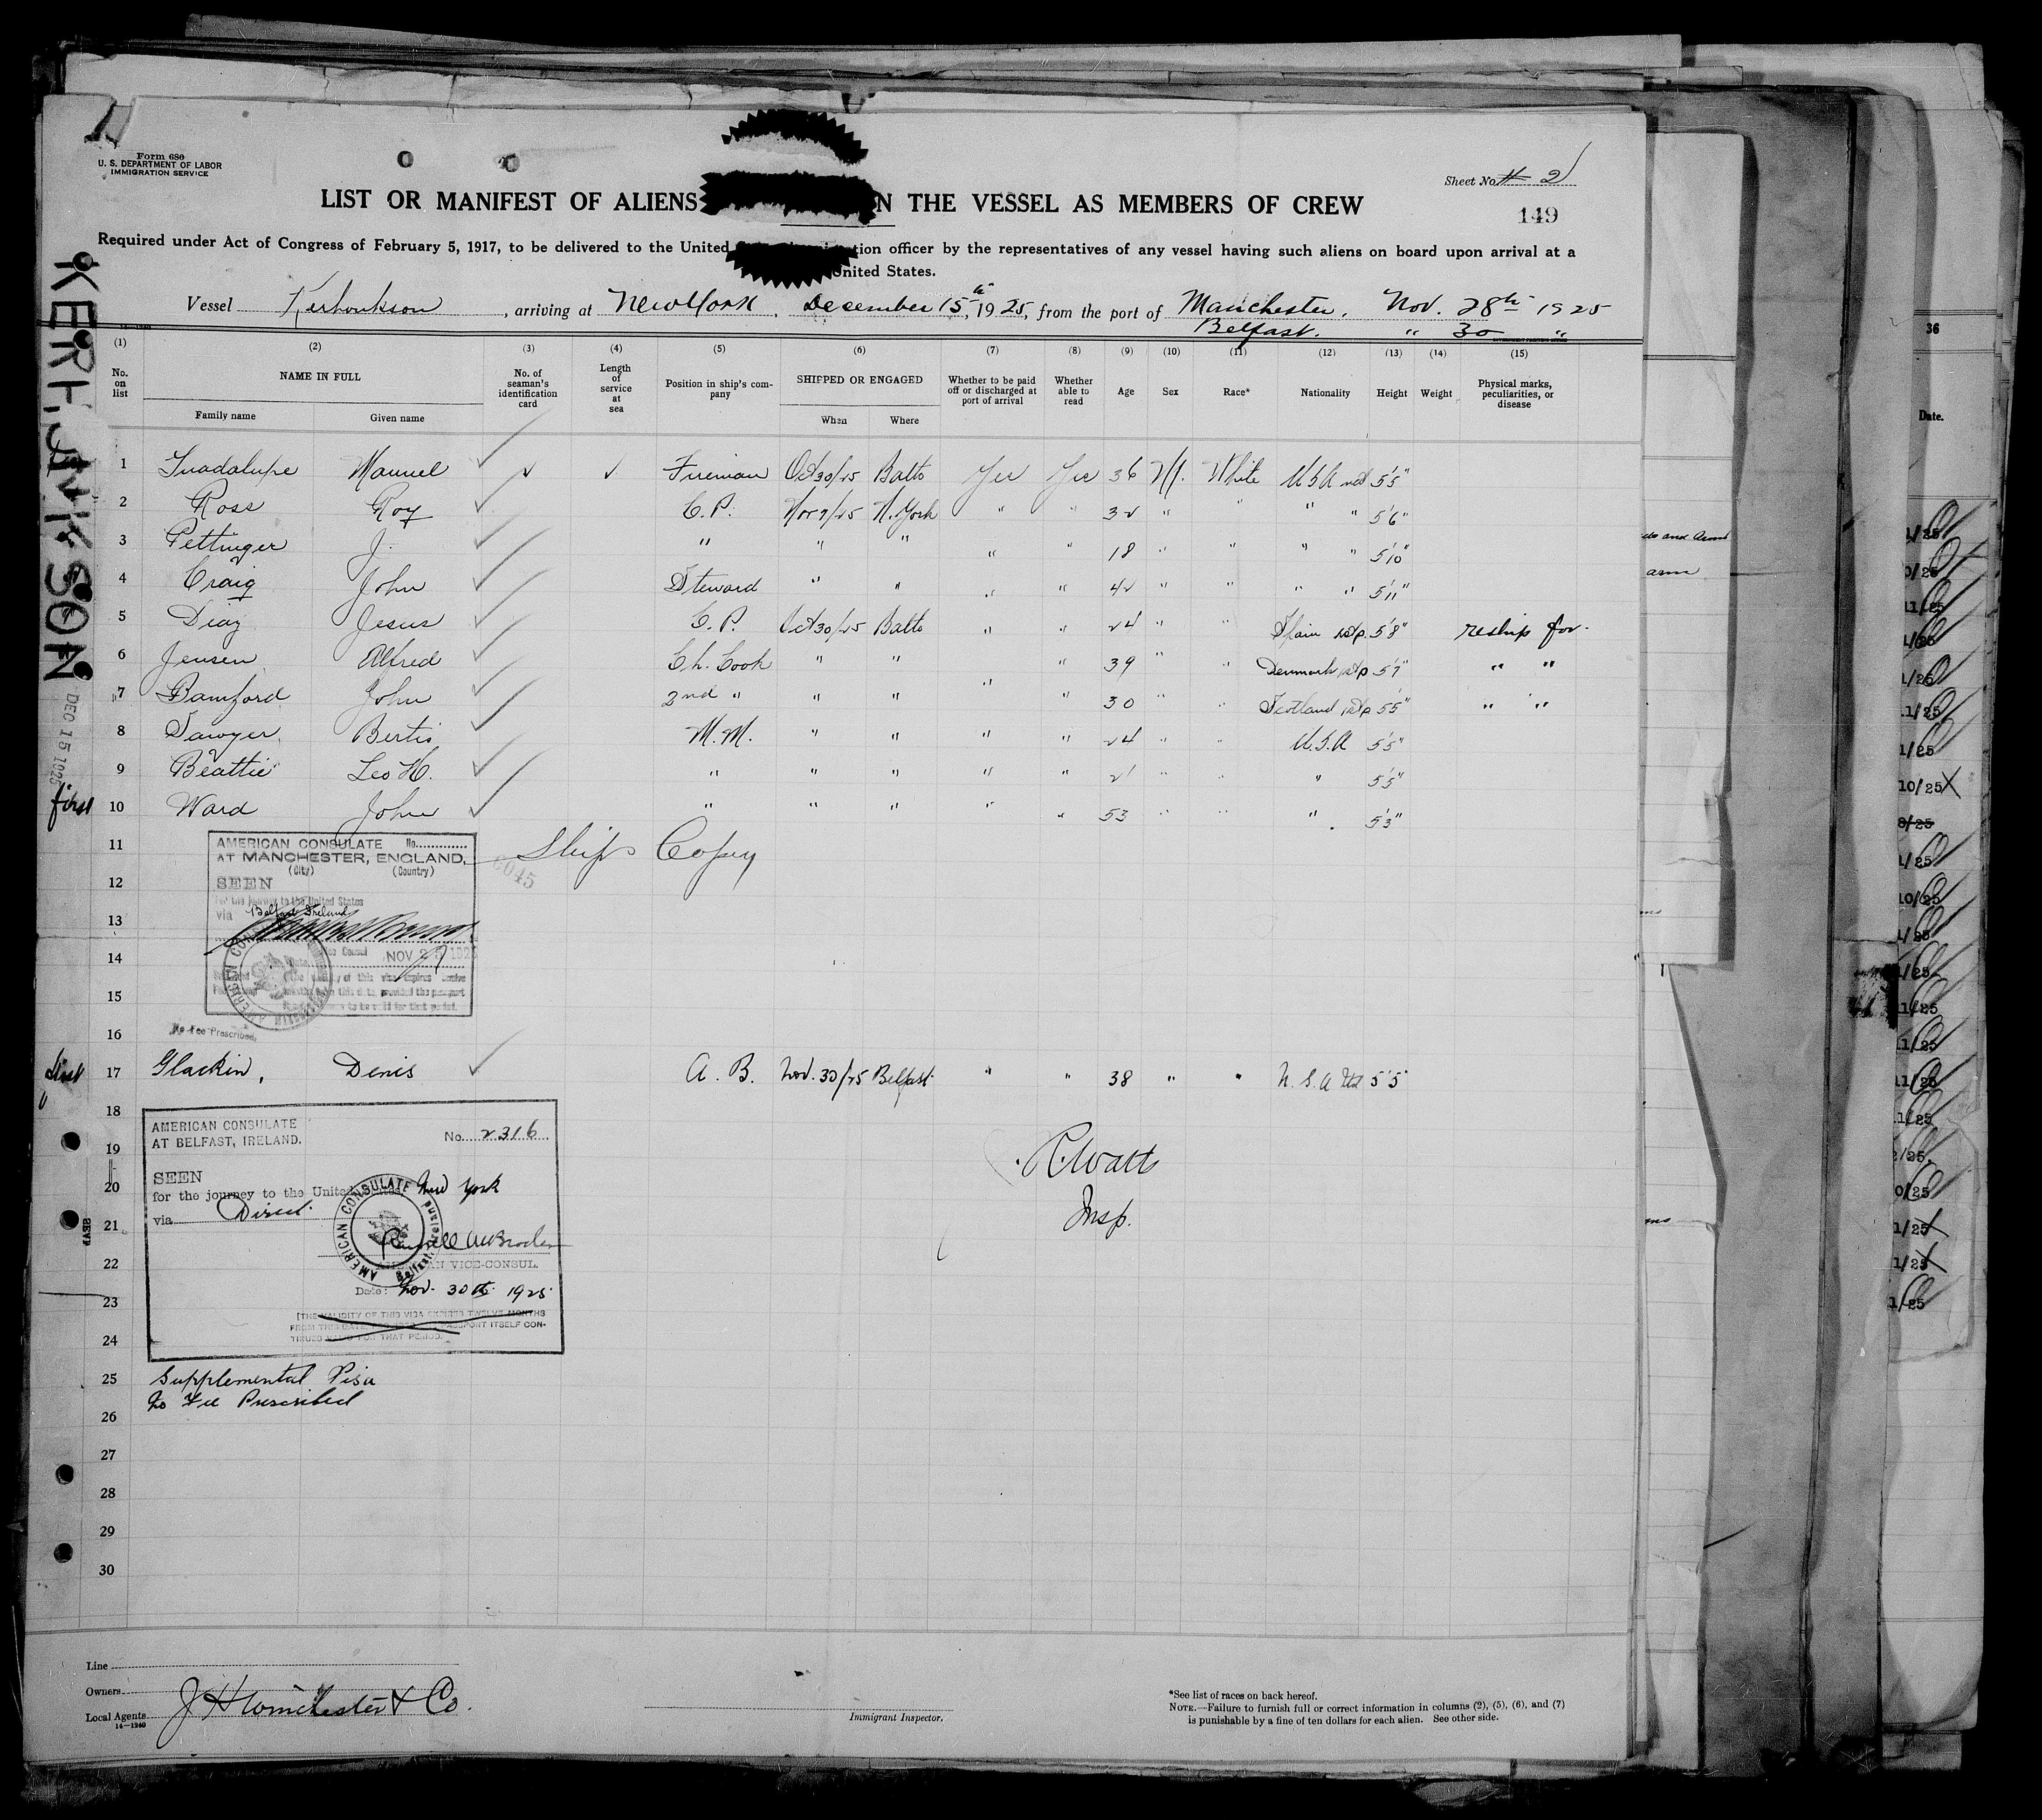 Form 680
U. S. DEPARTMENT OF LABOR
IMMIGRATION SERVICE
Sheet No. # 2
149
LIST OR MANIFEST OF ALIENS N THE VESSEL AS MEMBERS OF CREW
Required under Act of Congress of February 5, 1917, to be delivered to the United tion officer by the representatives of any vessel having such aliens on board upon arrival at a
United States.
Vessel Kerhonkson, arriving at New York, December 15th, 1925, from the port of Manchester, Nov. 28th 1925
Belfast. " 30 "
KERHONKSON
DEC 15 1925
(1) (2) (3) (4) (5) (6) (7) (8) (9) (10) (11) (12) (13) (14) (15)
No. on list NAME IN FULL Family name Given name No. of seaman's identification card Length of service at sea Position in ship's company SHIPPED OR ENGAGED When Where Whether to be paid off or discharged at port of arrival Whether able to read Age Sex Race* Nationality Height Weight Physical marks, peculiarities, or disease
1 Guadalupe Manuel Fireman Oct 30/25 Balto Yes Yes 36 M. White U S A 5'5"
2 Ross Roy C. P. Nov 9/25 N. York " " 32 " " " " 5'6"
3 Pettinger J. " " " " " 18 " " " " 5'10"
4 Craig John Steward " " " " 42 " " " " 5'11"
5 Diaz Jesus C. P. Oct 30/25 Balto " " 24 " " Spain 5'8" reship for.
6 Jensen Alfred Ch. Cook " " " " 39 " " Denmark 5'7" " "
7 Bamford John 2nd " " " " 30 " Scotland 5'5" " "
8 Sawyer Bertis M. M. " " " " 24 " " U.S.A 5'5"
9 Beattie Leo H. " " " " " 21 " " " 5'5"
first 10 Ward John " " " " " 53 " " " 5'3"
11 Ships Copy
12
13
14
15
16
AMERICAN CONSULATE No.
AT MANCHESTER, ENGLAND,
(City) (Country)
SEEN
for the journey to the United States
via Belfast Ireland
NOV 25 1925
No Fee Prescribed.
6045
17 Glackin, Denis A. B. Nov. 30/25 Belfast " " 38 " " U. S. A 5'5"
18
19
20
21
22
23
24
AMERICAN CONSULATE
AT BELFAST, IRELAND.
No. 2316
SEEN
for the journey to the United New York
via Direct
AMERICAN CONSULATE Belfast, Ireland
VICE-CONSUL.
Date: Nov. 30th 1925
[THE VALIDITY OF THIS VISA EXPIRES TWELVE MONTHS
FROM THIS DATE PASSPORT ITSELF CON-
TINUES FOR THAT PERIOD.
R. Watts
Insp.
25 Supplemental Visa
No Fee Prescribed
26
27
28
29
30
Line
Owners
Local Agents J H Winchester & Co.
14—1240
Immigrant Inspector.
*See list of races on back hereof.
NOTE.—Failure to furnish full or correct information in columns (2), (5), (6), and (7)
is punishable by a fine of ten dollars for each alien. See other side.
36
Date.